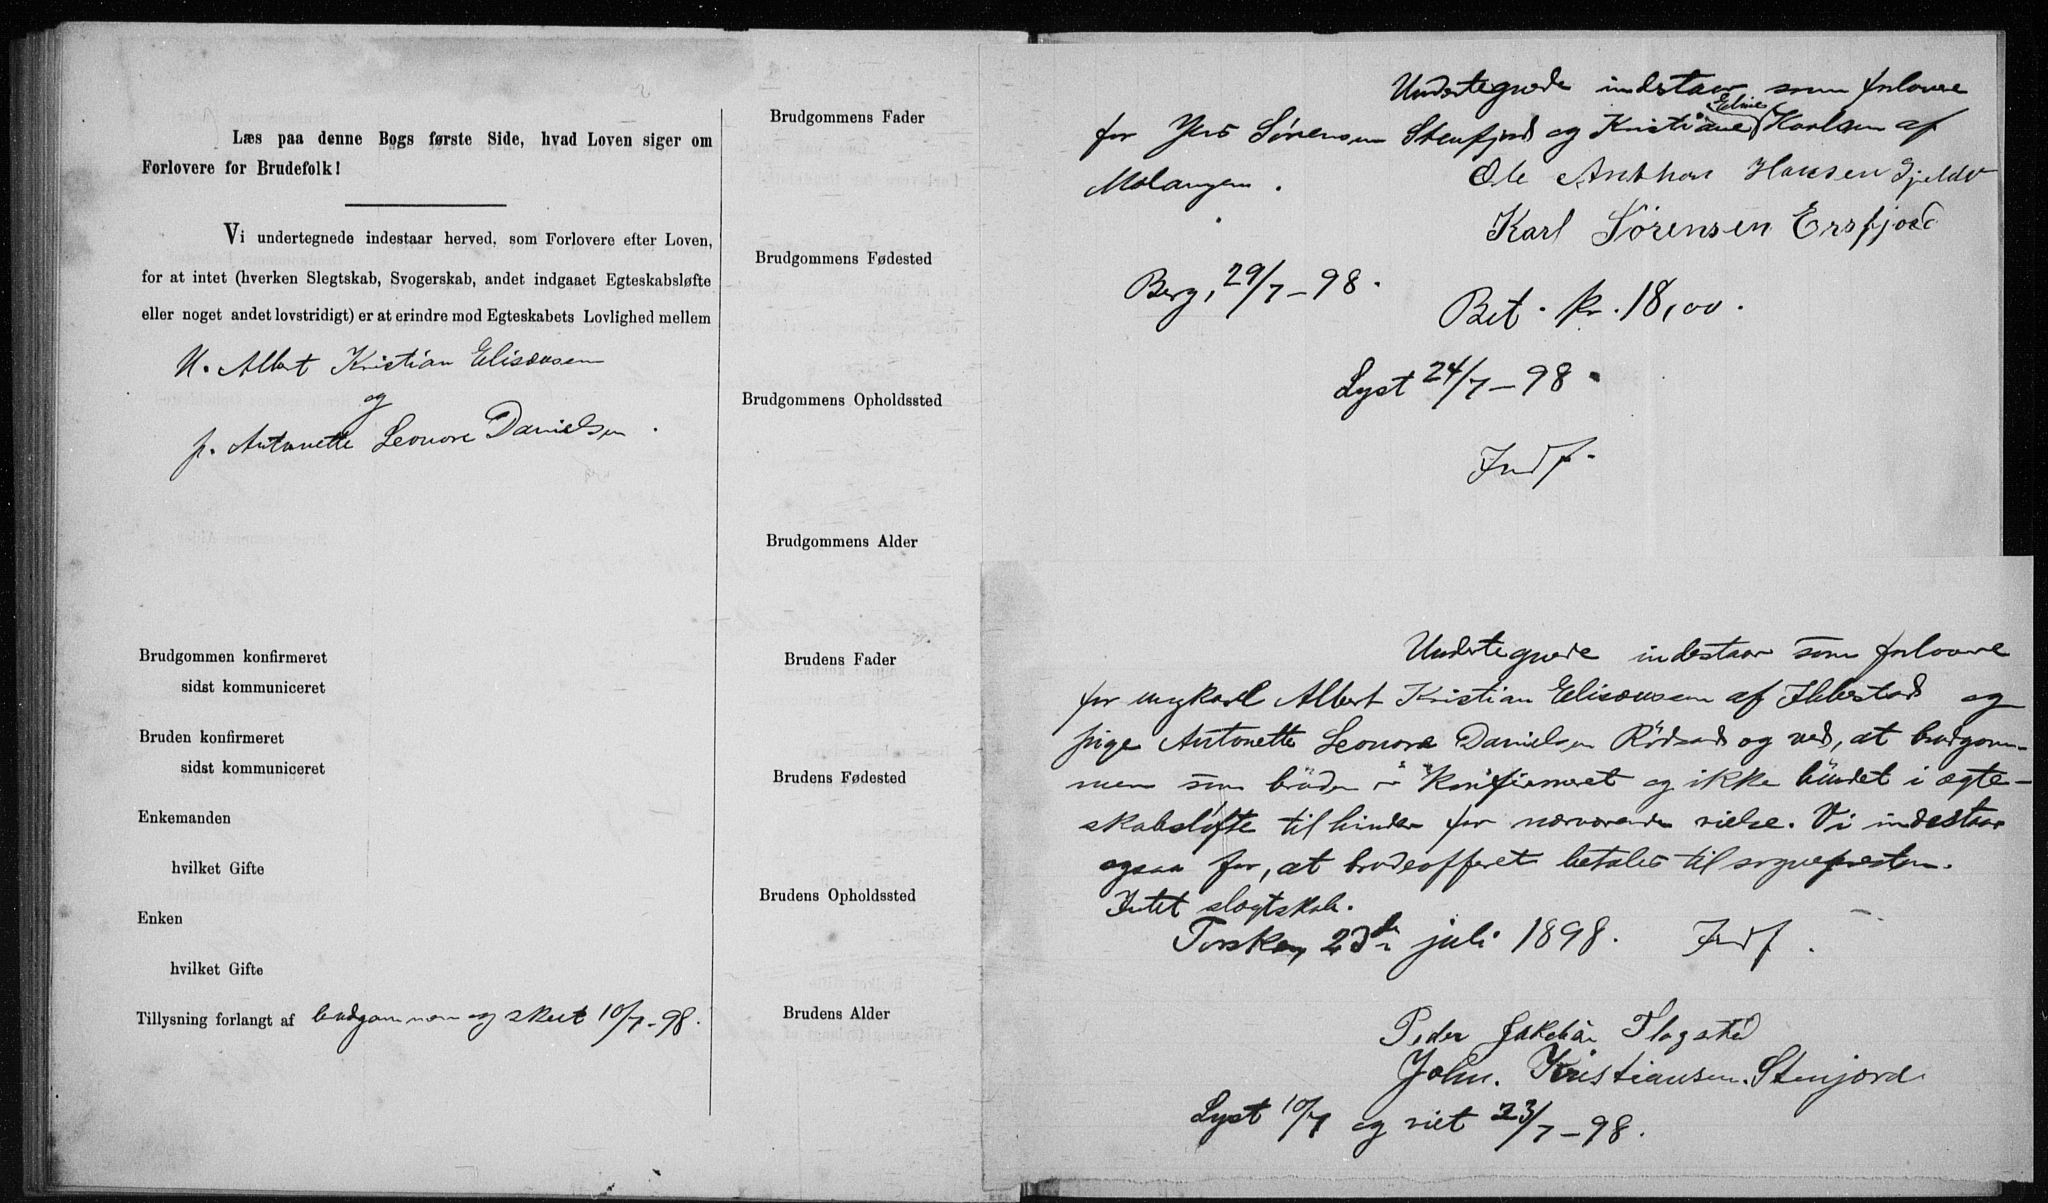 Læs paa denne Bogs første Side, hvad Loven siger om
Forlovere for Brudefolk!
Vi undertegnede indestaar herved, som Forlovere efter Loven,
for at intet (hverken Slegtskab, Svogerskab, andet indgaaet Egteskabsløfte
eller noget andet lovstridigt) er at erindre mod Egteskabets Lovlighed mellem
U. Albert Kristian Elisæusen
og
p. Antonette Leonore Danielsen.
Brudgommen konfirmeret
sidst kommuniceret
Bruden konfirmeret
sidst kommuniceret
Enkemanden
hvilket Gifte
Enken
hvilket Gifte
Tillysning forlangt af brudgommen og skeet 10/7-98.
Brudgommens Fader
Brudgommens Fødested
Brudgommens Opholdssted
Brudgommens Alder
Brudens Fader
Brudens Fødested
Brudens Opholdssted
Brudens Alder
Undertegnede indstaar som forlovere
for Jens Sørensen Stenfjord og Kristiane Eline Karlsen af
Malangen.
Ole Anthon Hansen
Karl Sørensen Ersfjord
Berg, 29/7-98.
Bet. kr. 18,00.
Lyst 24/7-98.
Indf.
Undertegnede indestaar som forlovere
for ungkarl Albert Kristian Elisæusen af Ibbestad og
pige Antonette Leonore Danielsen Rödsand og ved, at brudgom-
men som bruden er konfirmeret og ikke bundet i ægte-
skabsløfte til hinder for nærværende vielse. Vi indestaar
ogsaa for, at brudeofferet betales til sognepresten.
Intet slægtskab.
Torsken, 23de juli 1898. Indf.
Peder Jakobsen Flagstad
John. Kristiansen. Stenjord
Lyst 10/7 og viet 23/7-98.